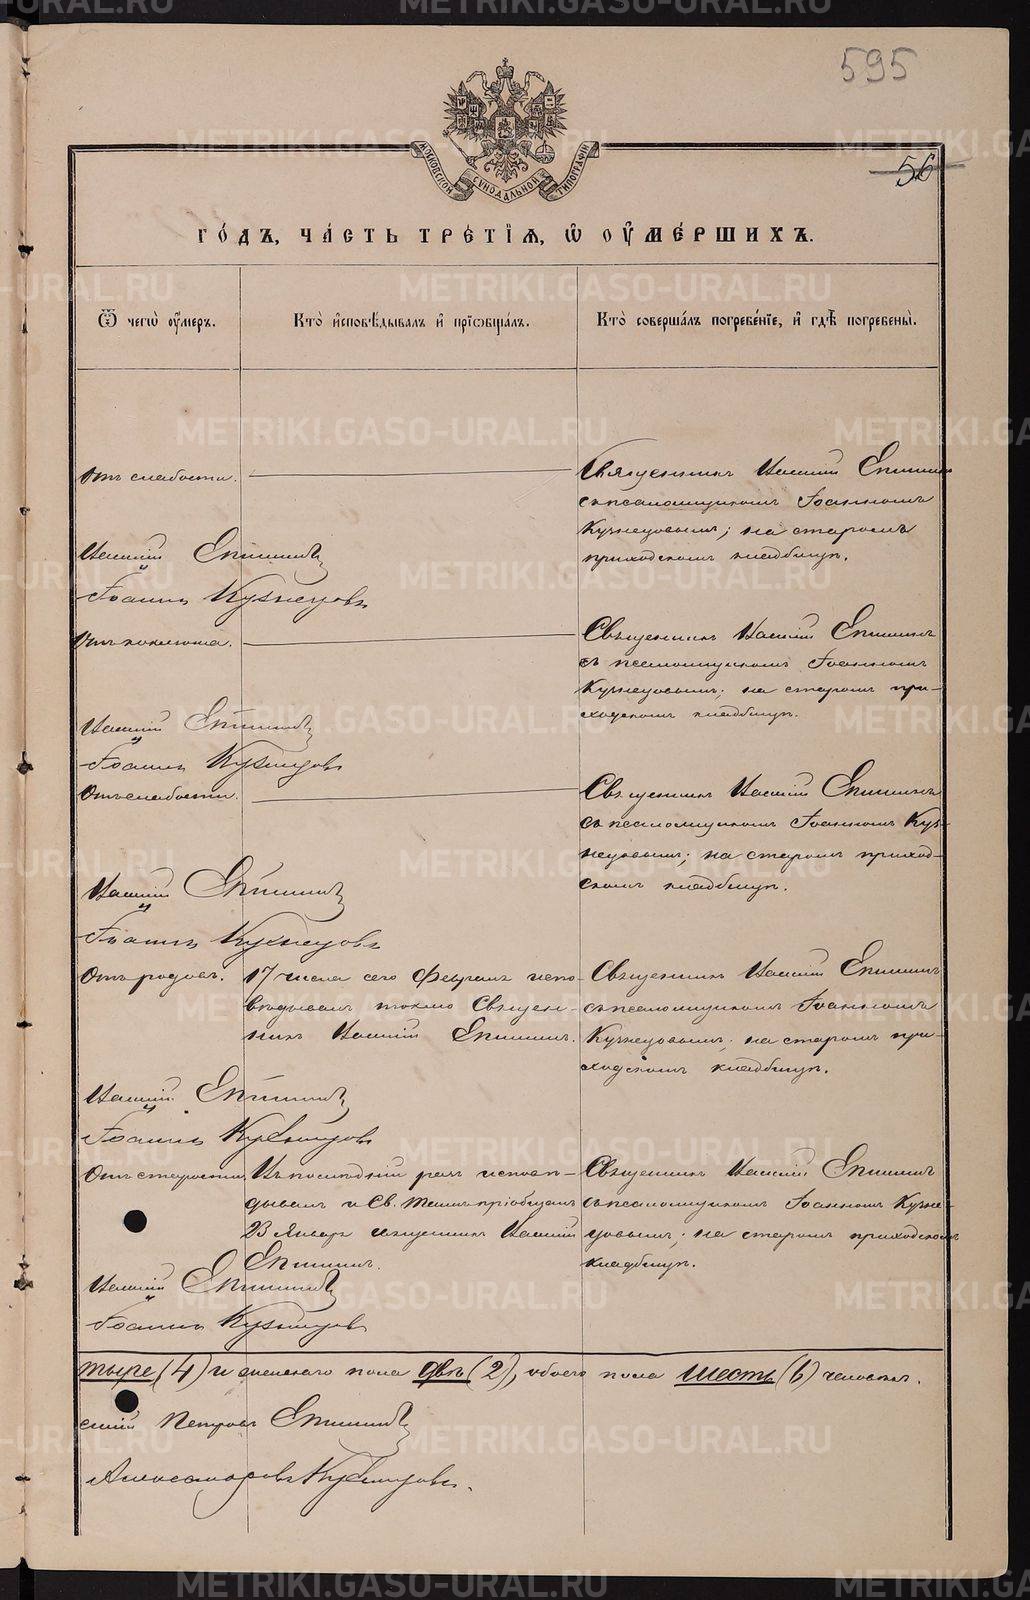 595
56
МОСКОВСКОЙ СУНОДАЛЬНОЙ ТИПОГРАФІИ
ГО́ДЪ, ЧА́СТЬ ТРЕ́ТІѦ, Ѡ҆ ОУ҆МЕ́РШИХЪ.
Ѿ чегѡ̀ оу҆́меръ.
Кто̀ и҆сповѣ́дывалъ и҆ прїѡбща́лъ.
Кто̀ соверша́лъ погребе́нїе, и҆ гдѣ̀ погребены̀.
Отъ слабости.
Священникъ Епишинъ
съ псаломщикомъ Іоанномъ
Кузнецовымъ; на старомъ
приходскомъ кладбищѣ.
Епишинъ
Іоаннъ Кузнецовъ
Священникъ Епишинъ
съ псаломщикомъ Іоанномъ
Кузнецовымъ; на старомъ при-
ходскомъ кладбищѣ.
Епишинъ
Іоаннъ Кузнецовъ
Отъ слабости.
Священникъ Епишинъ
съ псаломщикомъ Іоанномъ Куз-
нецовымъ; на старомъ приход-
скомъ кладбищѣ.
Епишинъ
Іоаннъ Кузнецовъ
Отъ родовъ.
17 числа сего Февраля испо-
вѣдывалъ токмо Священ-
никъ Епишинъ.
Священникъ Епишинъ
съ псаломщикомъ Іоанномъ
Кузнецовымъ; на старомъ при-
ходскомъ кладбищѣ.
Епишинъ
Іоаннъ Кузнецовъ
Отъ старости.
послѣдній разъ исповѣ-
дывалъ и Св. Таинъ пріобщалъ
23 Января священникъ
Епишинъ.
Священникъ Епишинъ
съ псаломщикомъ Іоанномъ Кузне-
цовымъ; на старомъ приходскомъ
кладбищѣ.
Епишинъ
Іоаннъ Кузнецовъ
тыре (4) и женскаго пола двѣ (2), обоего пола шесть (6) человѣкъ.
Петровъ Епишинъ
Александровъ Кузнецовъ.
METRIKI.GASO-URAL.RU